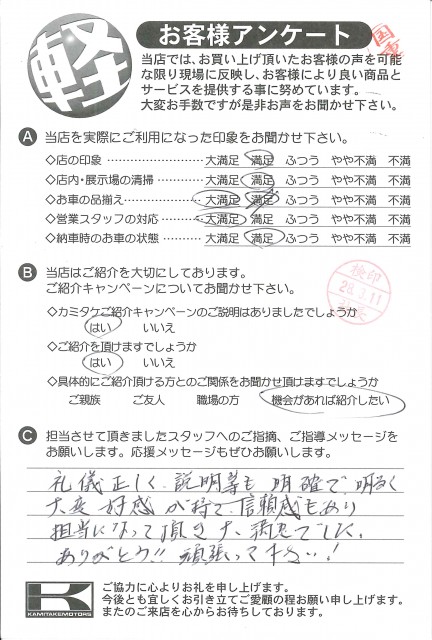 軽
お客様アンケート
当店では、お買い上げ頂いたお客様の声を可能
な限り現場に反映し、お客様により良い商品と
サービスを提供する事に努めています。
大変お手数ですが是非お声をお聞かせ下さい。
A 当店を実際にご利用になった印象をお聞かせ下さい。
◇店の印象 大満足 満足 ふつう やや不満 不満
◇店内・展示場の清掃 大満足 満足 ふつう やや不満 不満
◇お車の品揃え 大満足 満足 ふつう やや不満 不満
◇営業スタッフの対応 大満足 満足 ふつう やや不満 不満
◇納車時のお車の状態 大満足 満足 ふつう やや不満 不満
B 当店はご紹介を大切にしております。
ご紹介キャンペーンについてお聞かせ下さい。
検印
◇カミタケご紹介キャンペーンのご説明はありましたでしょうか
はい いいえ
◇ご紹介を頂けますでしょうか
はい いいえ
◇具体的にご紹介頂ける方とのご関係をお聞かせ頂けますでしょうか
ご親族 ご友人 職場の方 機会があれば紹介したい
C 担当させて頂きましたスタッフへのご指摘、ご指導メッセージを
お願いします。応援メッセージもぜひお願いします。
礼儀正しく、説明等も明確で、明るく
大変好感が持て、信頼感もあり
担当になって頂き大満足でした。
ありがとう!! 頑張って下さい!
KAMITAKEMOTORS
ご協力に心よりお礼を申し上げます。
今後とも宜しくお引き立てご愛顧の程お願い申し上げます。
またのご来店を心からお待ちしております。